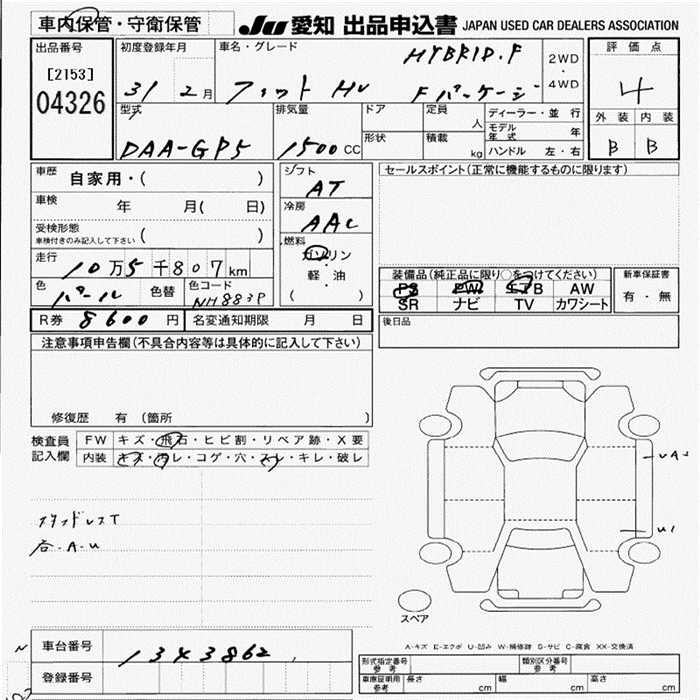 車内保管・守衛保管 JU 愛知 出品申込書 JAPAN USED CAR DEALERS ASSOCIATION
出品番号 初度登録年月 車名・グレード HYBRID.F 2WD・4WD 評価点
[2153] 04326 31 2月 フィット HV Fパッケージ 4
型式 DAA-GP5 排気量 1500CC ドア 定員 人 ディーラー・並行
形状 積載 kg モデル年式 年
ハンドル 左・右
外装 内装
B B
車歴 自家用・( )
車検 年 月( 日)
受検形態 車検付きのみ記入して下さい ( )
走行 10万5千807km
色 パール 色替 色コード NH883P
R券 8600円 名変通知期限 月 日
シフト AT
冷房 AAC
燃料 ガソリン
軽・油
( )
セールスポイント(正常に機能するものに限ります)
装備品(純正品に限り○をつけてください) 新車保証書
PS PW エアB AW 有・無
SR ナビ TV カワシート
後日品
注意事項申告欄(不具合内容等は具体的に記入して下さい)
修復歴 有 (箇所 )
検査員記入欄 FW キズ・飛石・ヒビ割・リペア跡・X要
内装 キズ・汚レ・コゲ・穴・スレ・キレ・破レ
A-U
UA
U1
スペア
A-キズ E-エクボ U-凹み W-補修跡 S-サビ C-腐食 XX-交換済
車台番号 1343862
登録番号
型式指定番号 参考 類別区分番号 参考
車庫証明用 参考 長さ cm 幅 cm 高さ cm